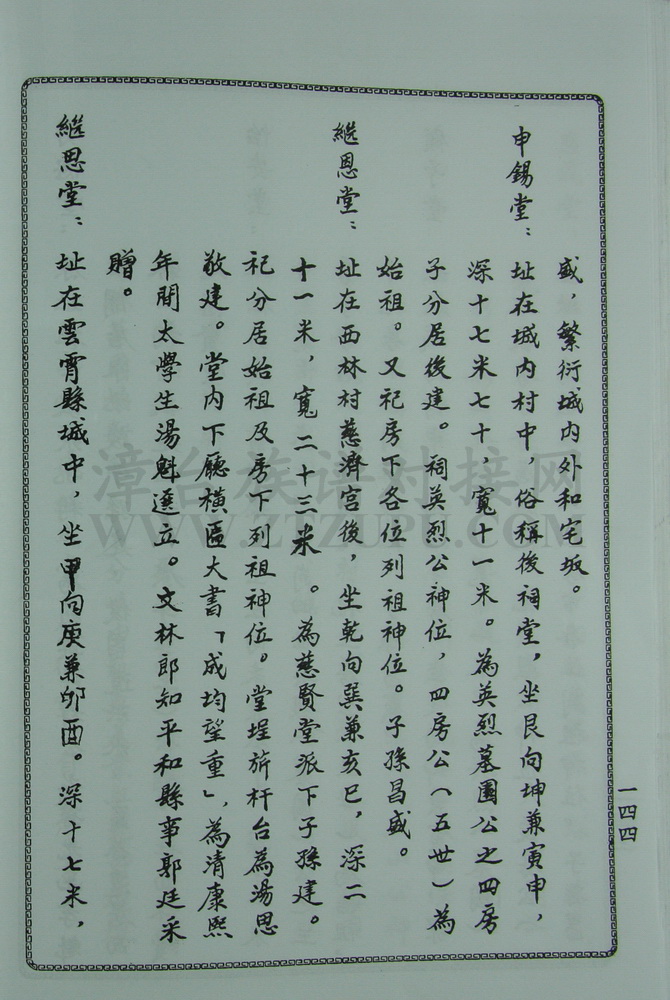 盛，繁衍城内外和宅坂。
申錫堂：址在城内村中，俗稱後祠堂，坐艮向坤兼寅申，
深十七米七十，寬十一米。為英烈墓園公之四房
子分居後建。祠英烈公神位，四房公（五世）為
始祖。又祀房下各位列祖神位。子孫昌盛。
繼恩堂：址在西林村慈濟宫後，坐乾向巽兼亥巳，深二
十一米，寬二十三米。為慈賢堂派下子孫建。
祀分居始祖及房下列祖神位。堂埕旂杆台為湯思
敬建。堂内下廳橫匾大書「成均望重」，為清康熙
年間太學生湯魁選立。文林郎知平和縣事郭廷采
贈。
繼恩堂：址在雲霄縣城中，坐甲向庚兼卯酉。深十七米，
一四四
漳台族谱对接网
WWW.ZTZUPU.COM